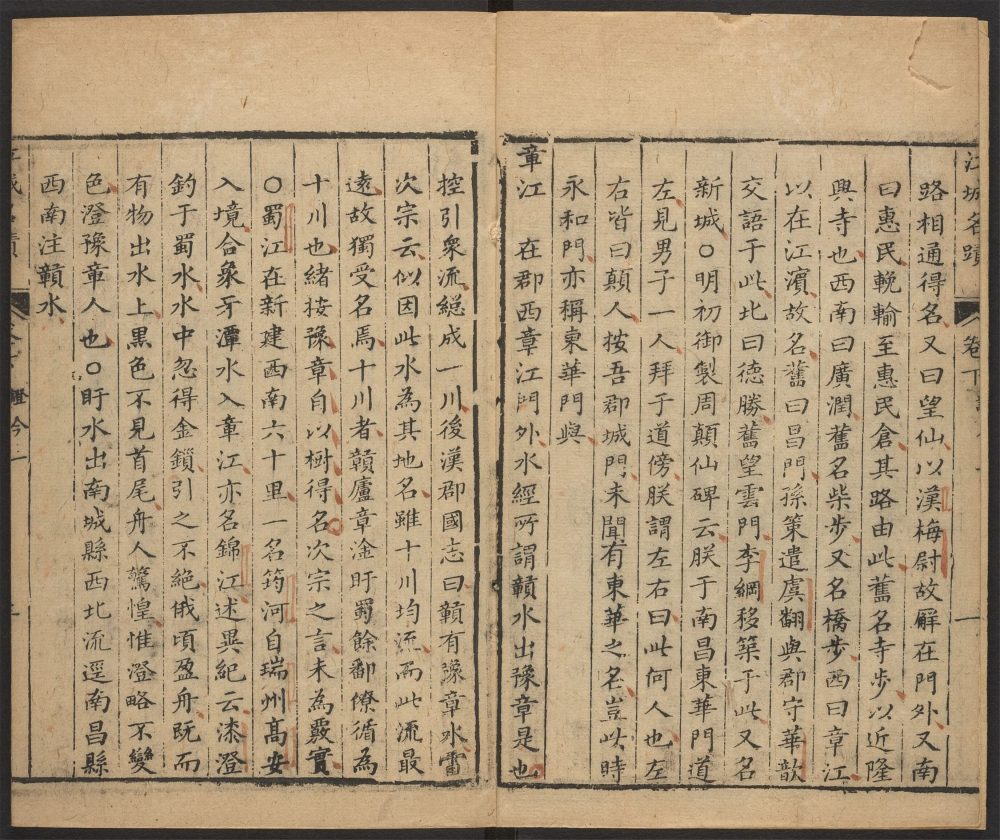 江城名蹟 卷下 一
路相通得名又曰望仙以漢梅尉故廨在門外又南
曰惠民輓輸至惠民倉其路由此舊名寺步以近隆
興寺也西南曰廣潤舊名柴步又名橋步西曰章江
以在江濱故名舊曰昌門孫策遣虞翻與郡守華歆
交語于此北曰德勝舊望雲門李綱移築于此又名
新城○明初御製周顛仙碑云朕于南昌東華門道
左見男子一人拜于道傍朕謂左右曰此何人也左
右皆曰顛人按吾郡城門未聞有東華之名豈此時
永和門亦稱東華門與
章江 在郡西章江門外水經所謂贑水出豫章是也
控引衆流総成一川後漢郡國志曰贑有豫章水雷
次宗云似因此水為其地名雖十川均流而此流最
遠故獨受名焉十川者贑廬章淦盱蜀餘鄱僚循為
十川也緒按豫章自以樹得名次宗之言未為覈實
○蜀江在新建西南六十里一名筠河自瑞州髙安
入境合象牙潭水入章江亦名錦江述異紀云漆澄
釣于蜀水水中忽得金鎖引之不絶俄頃盈舟既而
有物出水上黒色不見首尾舟人驚惶惟澄略不變
色澄豫章人也○盱水出南城縣西北流逕南昌縣
西南注贑水
證今一